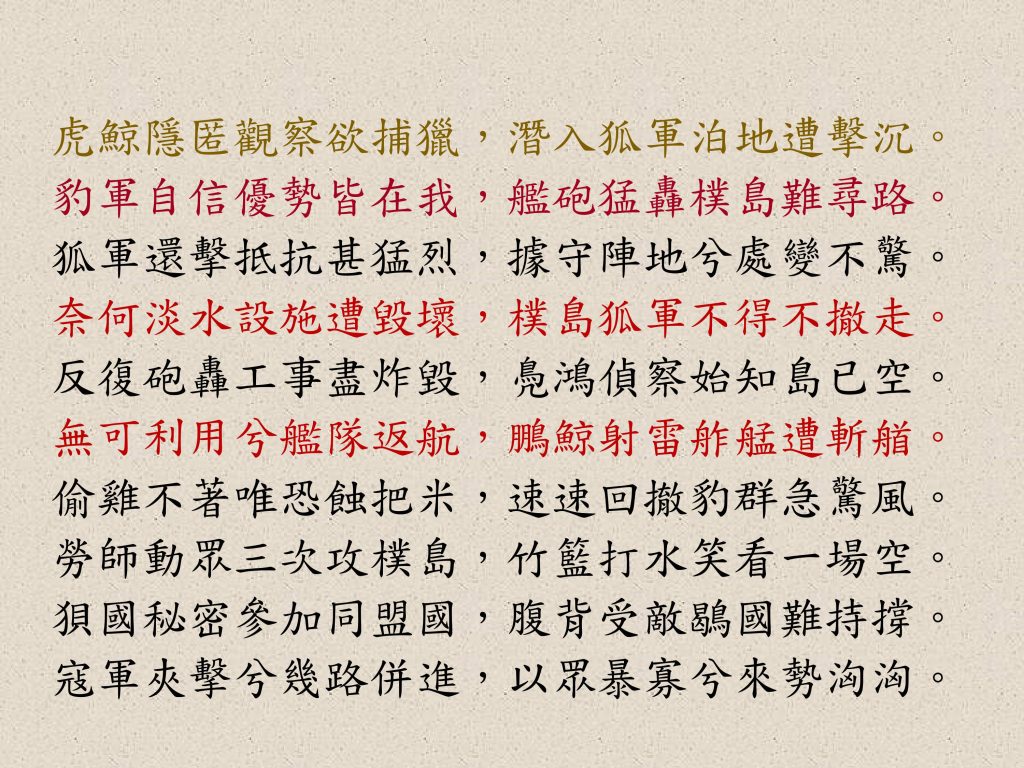 虎鯨隱匿觀察欲捕獵，潛入狐軍泊地遭擊沉。
豹軍自信優勢皆在我，艦砲猛轟樸島難尋路。
狐軍還擊抵抗甚猛烈，據守陣地兮處變不驚。
奈何淡水設施遭毀壞，樸島狐軍不得不撤走。
反復砲轟工事盡炸毀，鳧鴻偵察始知島已空。
無可利用兮艦隊返航，鵬鯨射雷舴艋遭斬艏。
偷雞不著唯恐蝕把米，速速回撤豹群急驚風。
勞師動眾三次攻樸島，竹籃打水笑看一場空。
狽國秘密參加同盟國，腹背受敵鶡國難持撐。
寇軍夾擊兮幾路併進，以眾暴寡兮來勢洶洶。